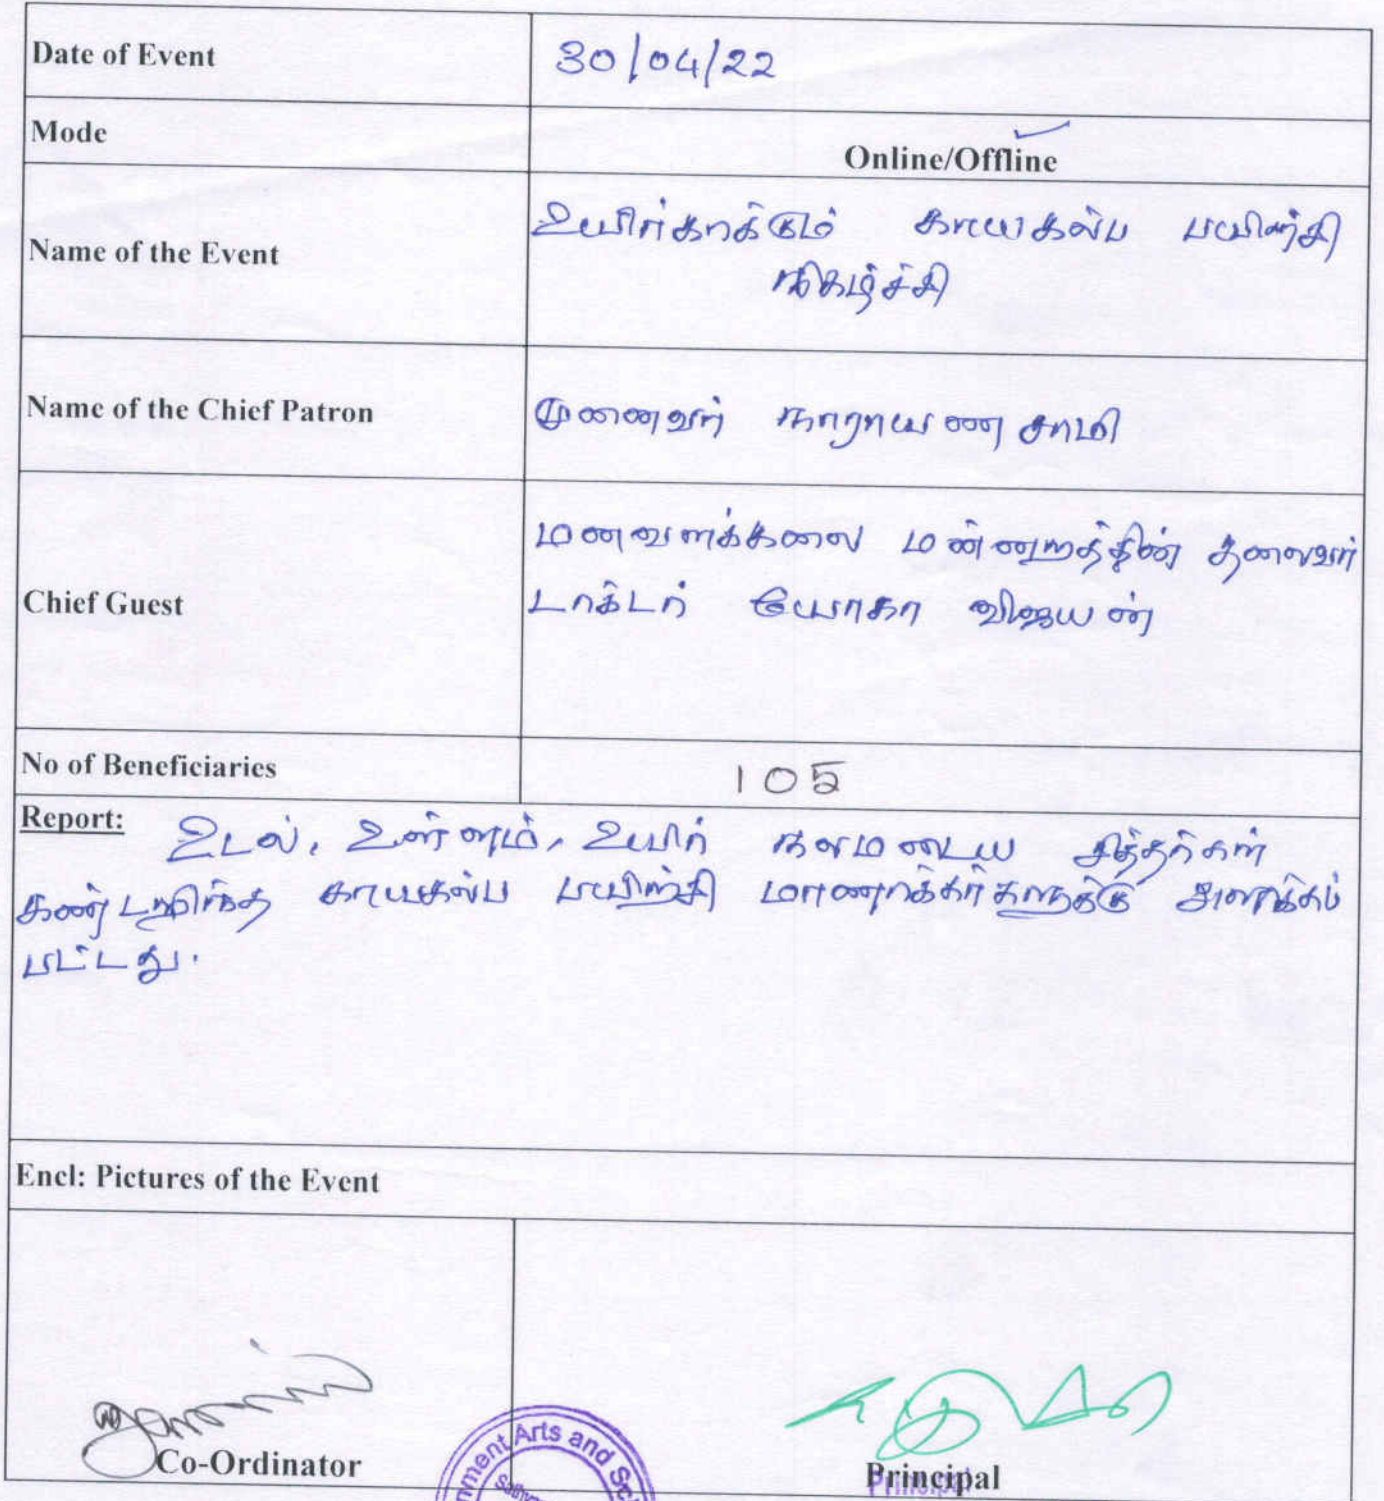 Date of Event 30/04/22
Mode Online/Offline
Name of the Event உயிர்காக்கும் காயகல்ப பயிற்சி
நிகழ்ச்சி
Name of the Chief Patron முனைவர் நாராயணசாமி
Chief Guest மனவளக்கலை மன்னறத்தின் தலைவர்
டாக்டர் யோகா விஜயன்
No of Beneficiaries 105
Report: உடல், உள்ளம், உயிர் நலமடைய சித்தர்கள்
கண்டறிந்த காயகல்ப பயிற்சி மாணாக்கர்களுக்கு அளிக்கப்
பட்டது.
Encl: Pictures of the Event
Co-Ordinator Principal
Principal
Arts and